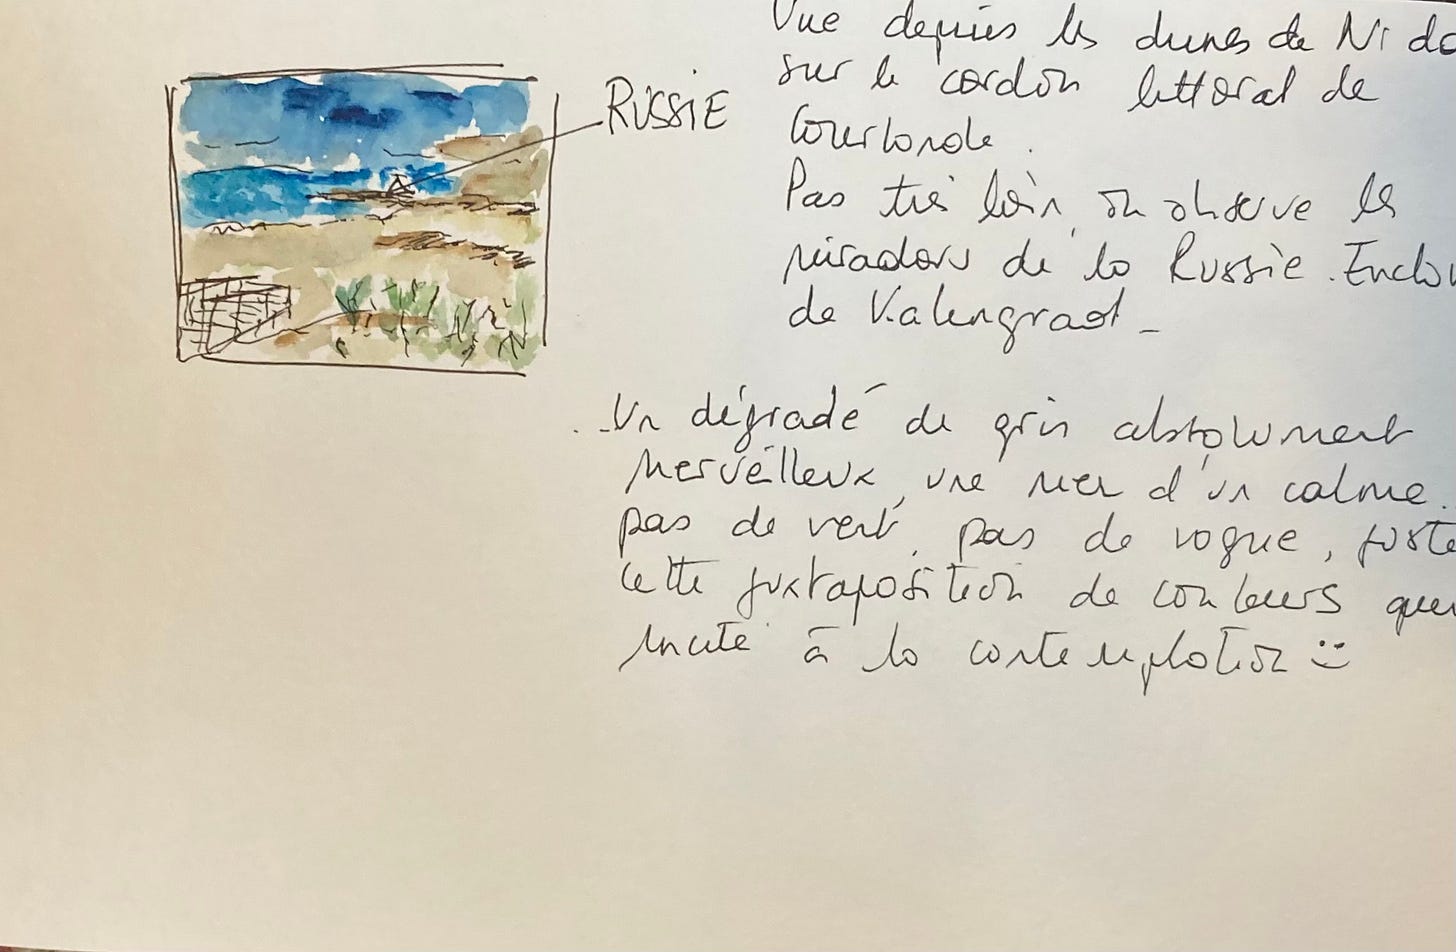 RUSSIE
Vue depuis les dunes de Nida
sur le cordon littoral de
Courlande.
Pas très loin, on observe les
miradors de la Russie. Enclav
de Kalengrad -
Un dégradé de gris absolument
merveilleux, une mer d'un calme.
pas de vent, pas de vogue, juste
cette juxtaposition de couleurs que
incite à la contemplation :)